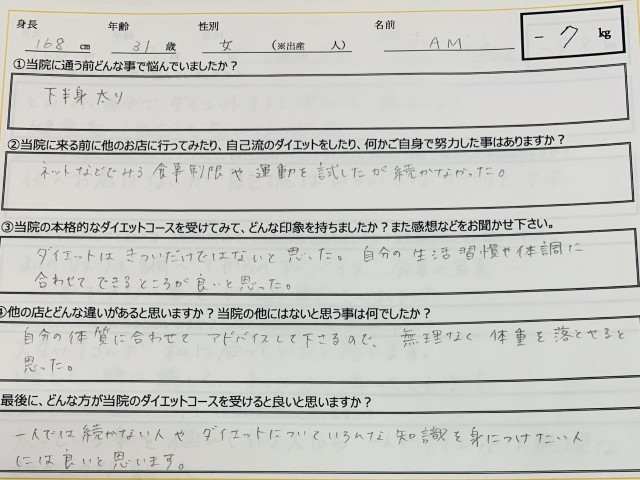 身長 168 cm 年齢 31 歳 性別 女 (※出産 人) 名前 AM -7 kg
①当院に通う前どんな事で悩んでいましたか？
下半身太り
②当院に来る前に他のお店に行ってみたり、自己流のダイエットをしたり、何かご自身で努力した事はありますか？
ネットなどでみる食事制限や運動を試したが続かなかった。
③当院の本格的なダイエットコースを受けてみて、どんな印象を持ちましたか？また感想などをお聞かせ下さい。
ダイエットはきついだけではないと思った。自分の生活習慣や体調に
合わせてできるところが良いと思った。
④他の店とどんな違いがあると思いますか？当院の他にはないと思う事は何でしたか？
自分の体質に合わせてアドバイスして下さるので、無理なく体重を落とせると
思った。
最後に、どんな方が当院のダイエットコースを受けると良いと思いますか？
一人では続かない人やダイエットについていろんな知識を身につけたい人
には良いと思います。